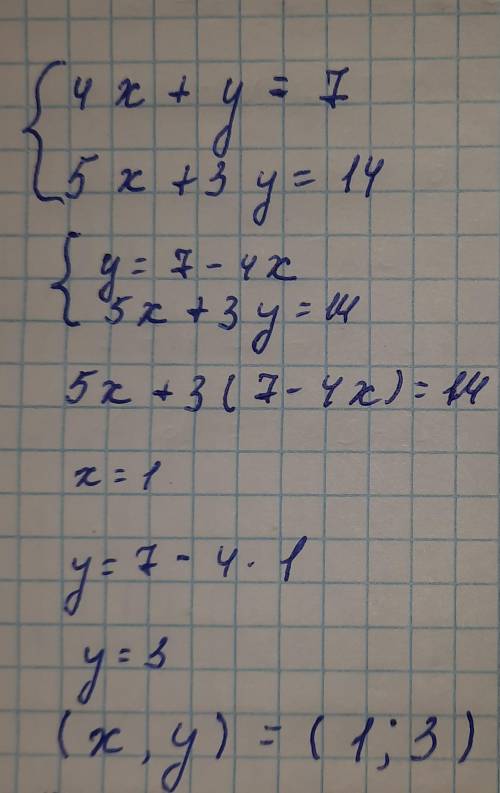 4x + y = 7
5x + 3y = 14
y = 7 - 4x
5x + 3y = 14
5x + 3(7 - 4x) = 14
x = 1
y = 7 - 4 · 1
y = 3
(x, y) = (1; 3)